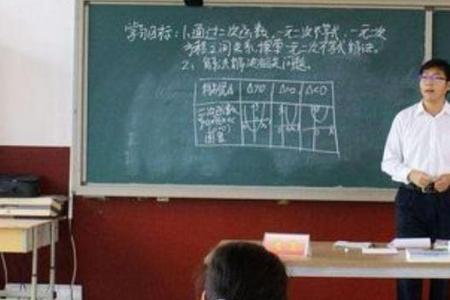 学习目标：1、通过二次函数，一元二次不等式，一元二次
方程之间关系，探索一元二次不等式解法。
2、解决解决相关问题。
判别式Δ Δ>0 Δ=0 Δ<0
二次函数
图象